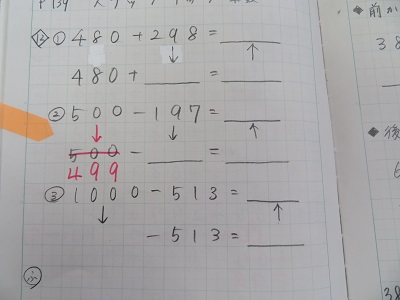 P139
⑫ ① 480+298=
480+ =
② 500-197=
500- =
499
③ 1000-513=
-513=
ふ
前か
38
後
6
38